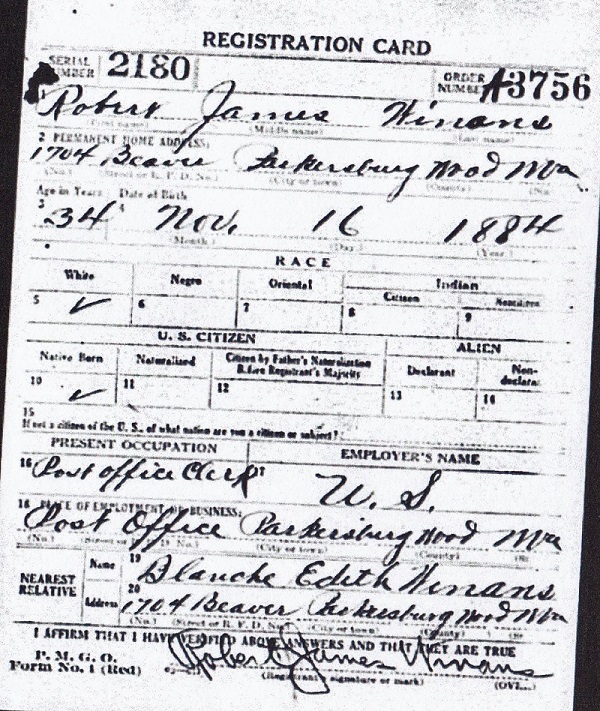 REGISTRATION CARD
SERIAL NUMBER 2180 ORDER NUMBER A3756
Robert James Winans
(First name) (Middle name) (Last name)
2 PERMANENT HOME ADDRESS:
1704 Beaver Parkersburg Wood WVa
(No.) (Street or R. F. D. No.) (City or town) (County)
Age in Years Date of Birth
3 34 4 Nov. 16 1884
(Month) (Day) (Year)
RACE
White Negro Oriental Indian
Citizen Noncitizen
5 ✓ 6 7 8 9
U. S. CITIZEN ALIEN
Native Born Naturalized Citizen by Father's Naturalization Before Registrant's Majority Declarant Non-declarant
10 ✓ 11 12 13 14
15
If not a citizen of the U. S., of what nation are you a citizen or subject?
PRESENT OCCUPATION EMPLOYER'S NAME
16 Post office Clerk 17 U. S.
18 PLACE OF EMPLOYMENT OR BUSINESS:
Post Office Parkersburg Wood WVa
(No.) (Street or R. F. D. No.) (City or town) (County)
NEAREST RELATIVE Name 19 Blanche Edith Winans
Address 20 1704 Beaver Parkersburg Wood WVa
(No.) (Street or R. F. D. No.) (City or town) (County)
I AFFIRM THAT I HAVE VERIFIED ABOVE ANSWERS AND THAT THEY ARE TRUE
P. M. G. O.
Form No. 1 (Red) Robert James Winans
(Registrant's signature or mark) (OVER)